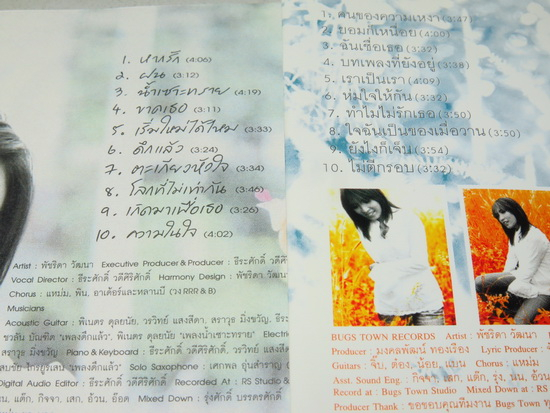 1. หากรัก (4:06)
2. ฝน (3:12)
3. น้ำเซาะทราย (4:19)
4. ขาดเธอ (3:11)
5. เริ่มใหม่ได้ไหม (3:33)
6. ดึกแล้ว (3:24)
7. ตะเกียงหัวใจ (3:34)
8. โลกที่ไม่เท่ากัน (3:46)
9. เกิดมาเพื่อเธอ (3:26)
10. ความในใจ (4:02)
Artist : พัชริดา วัฒนา Executive Producer & Producer : ธีระศักดิ์ วดีศิริศักดิ์
Vocal Director : ธีระศักดิ์ วดีศิริศักดิ์ Harmony Design : พัชริดา วัฒนา
Chorus : แหม่ม, พิน, อาเต๋อร์และหลานบี (วง RRR & B)
Musicians
Acoustic Guitar : พิเนตร ดุลยนัย, วรวิทย์ แสงสีดา, สราวุธ มิ่งขวัญ,
ชวลัน บัณฑิต "เพลงดึกแล้ว", พิเนตร ดุลยนัย "เพลงน้ำเซาะทราย"
สราวุธ มิ่งขวัญ, Piano & Keyboard : ธีระศักดิ์ วดีศิริศักดิ์, วรวิทย์ แสง
"เพลงดึกแล้ว" Solo Saxophone : เศกพล
Digital Audio Editor : ธีระศักดิ์ วดีศิริศักดิ์ Recorded At : RS Studio &
กิจจา, เสก, อ้วน, อ๊อด Mixed Down : รุ่งศักดิ์
1. คืนของความเหงา (3:47)
2. ยอมก็เหนื่อย (4:00)
3. ฉันเชื่อเธอ (3:32)
4. บทเพลงที่ยังอยู่ (3:38)
5. เราเป็นเรา (4:09)
6. หุ่มใจให้กัน (3:32)
7. ทำไมไม่รักเธอ (3:50)
8. ใจฉันเป็นของเมื่อวาน (3:50)
9. ยังไงก็เจ็บ (3:54)
10. ไม่ตีกรอบ (3:32)
BUGS TOWN RECORDS Artist : พัชริดา วัฒนา
Producer : มงคลพัฒน์ ทองเรือง Lyric Producer :
Guitars : จิ๊บ, ต๋อง, น้อย, แบน Chorus : แหม่ม,
Asst. Sound Eng. : กิจจา, เสก, แต๊ก, รุ่ง, นน, อ้วน
Record at : Bugs Town Studio Mixed Down at : RS
Producer Thank : ขอขอบคุณทีมงาน Bugs Town